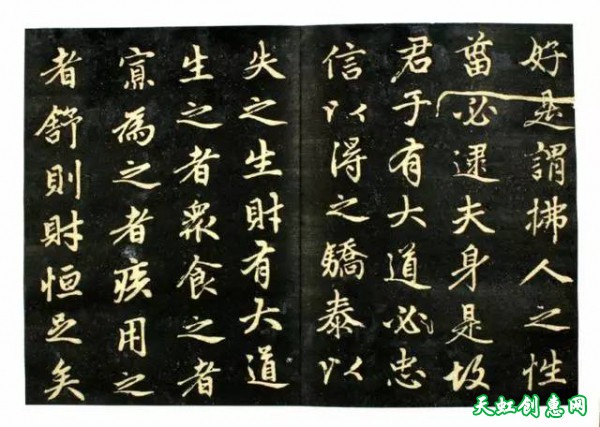 好是謂拂人之性
菑必逮夫身是故
君子有大道必忠
信以得之驕泰以
失之生財有大道
生之者衆食之者
寡為之者疾用之
者舒則財恒足矣
天虹创惠网